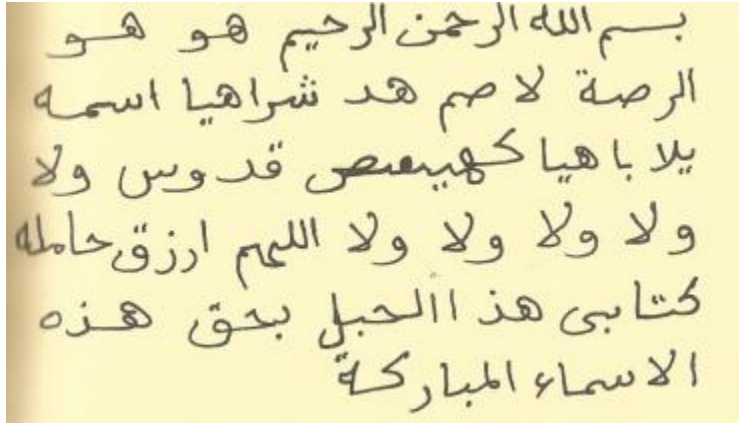 بسم الله الرحمن الرحيم هو هو
الرصة لا صم هد شراهيا اسمه
يلا با هيا كهيعص قدوس ولا
ولا ولا ولا ولا اللهم ارزق حامله
كتابى هذا الحبل بحق هذه
الاسماء المباركة